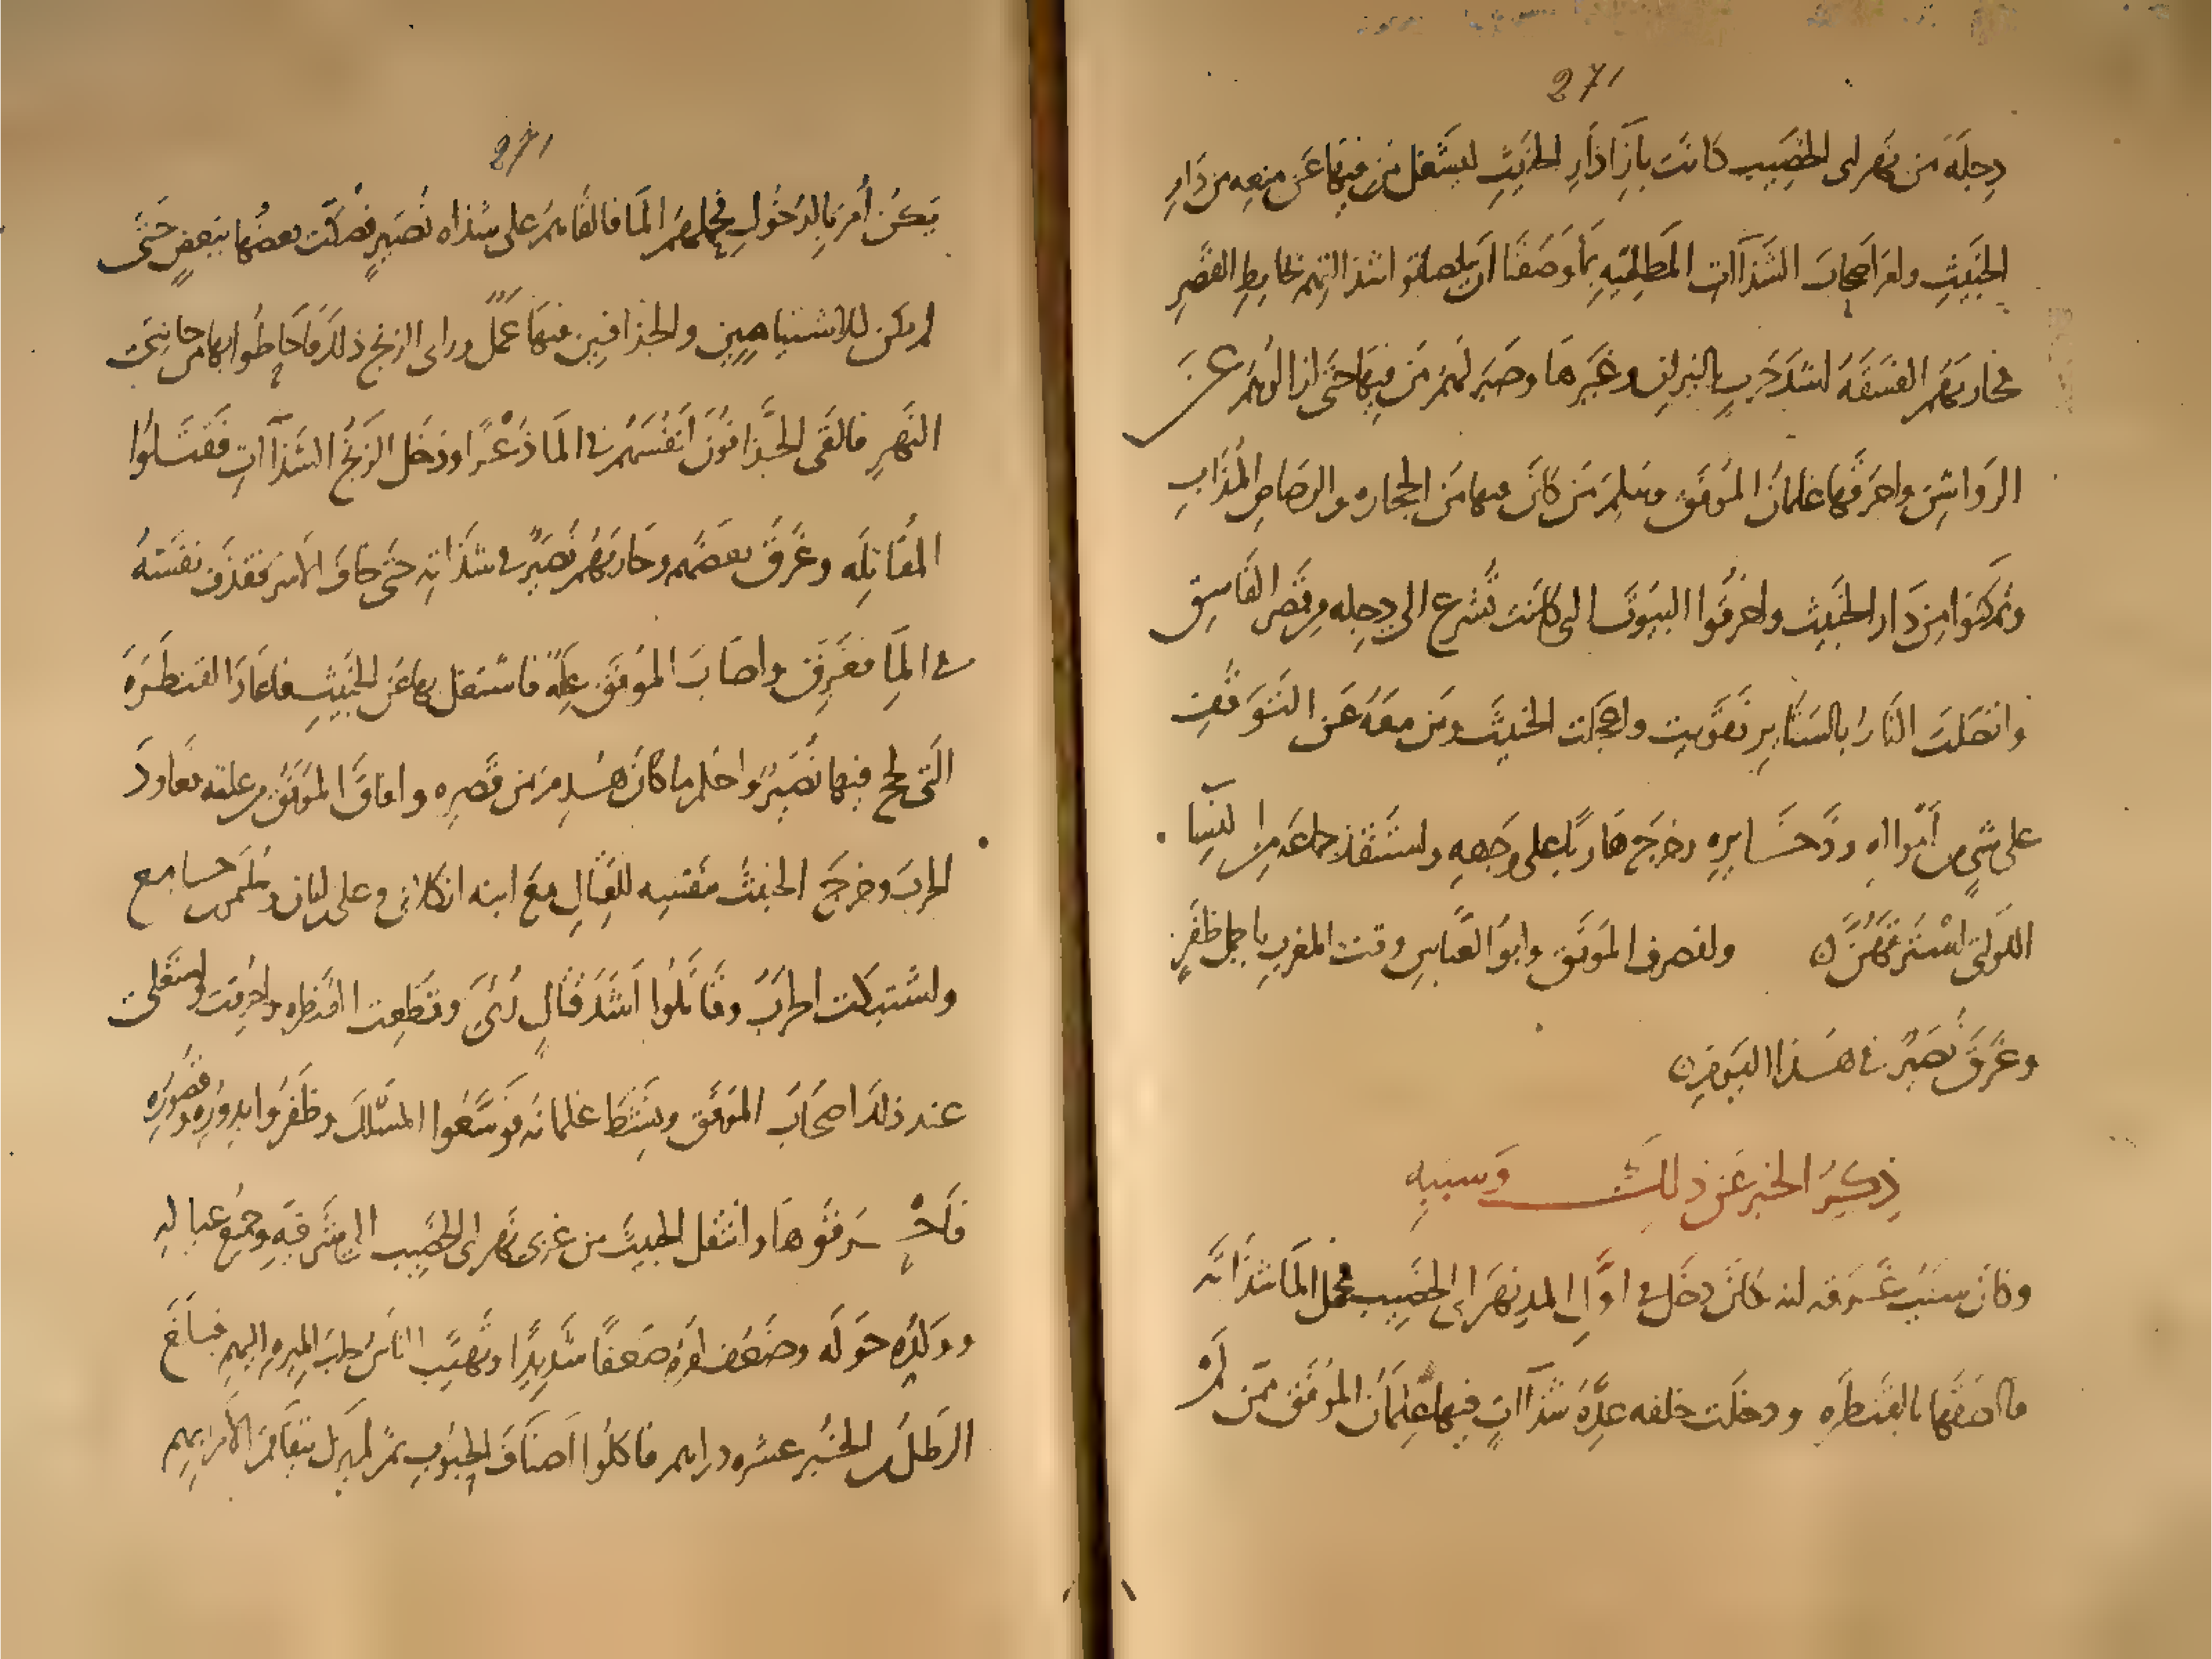 271
دجلة من نهر ابى الخصيب كانت بازا دار الخبيث ليشغل من فيها عن منعه من دار
الخبيث وامر اصحاب الشذاآت المطليه بما وصفنا ان يلصقوا شذااتهم بحايط القصر
فحاربهم الفسقه اشد حرب بالنيران وغيرها وصبر لهم من فيها حتى ازالوهم عن
الرواشن واحرقها غلمان الموفق وسلم من كان فيها من الحجاره والرصاص المذاب
وتمكنوا من دار الخبيث واحرقوا البيوت التى كانت تشرع الى دجله من قصر الفاسق
واتصلت النار بالستاير فقويت واعجلت الخبيث ومن معه عن التوقف
على شى من امواله وذخايره وخرج هاربا على وجهه واستنقذ جماعة من النسا
اللواتى استرقهن ن وانصرف الموفق وابو العباس وقت المغرب باجمل ظفر
وغرق نصير فى هذا اليوم ن
ذكر الخبر عن ذلك وسببه
وكان سبب غرقه انه كان دخل فى اول المد نهر ابى الخصيب فحمل الما شذاته
فالصقها بالقنطره ودخلت خلفه عدة شذاآت فيها غلمان الموفق ممن لم
271
يكن امر بالدخول فحملهم الما فالقاهم على شذاه نصير فصكت بعضها ببعض حتى
لم يكن للاشتياميين والجذافين فيها عمل وراى الزنج ذلك فاحاطوا بها من جانبى
النهر فالقى الجذافون انفسهم فى الما ذعرا ودخل الزنج الشذاآت فقتلوا
المقاتله وغرق بعضهم وحاربهم نصير فى شذاته حتى خاف الاسر فقذف نفسه
فى الما فغرق واصاب الموفق علة فاشتغل بها عن الخبيث فاعاد القنطره
التى لحج فيها نصير واصلح ما كان هدم من قصره وافاق الموفق من علته فعاود
الحرب وخرج الخبيث بنفسه للقتال مع ابنه انكلاى وعلى بن ابان وسليمن بن جامع
واشتبكت الحرب وقاتلوا اشد قتال رئى وقطعت القنطره واحرقت واستعلى
عند ذلك اصحاب الموفق ونشط غلمانه فوسعوا المسلك وظفروا بدوره وقصوره
فاحرقوها وانتقل الخبيث من غربى نهر ابى الخصيب الى شرقيه وجمع عياله
وولده حوله وضعف امره ضعفا شديدا وتهيب الناس جلب الميره اليهم فبلغ
الرطل من الخبز عشره دراهم فاكلوا اصناف الحبوب ثم لم يزل يتفاقم الامر بهم